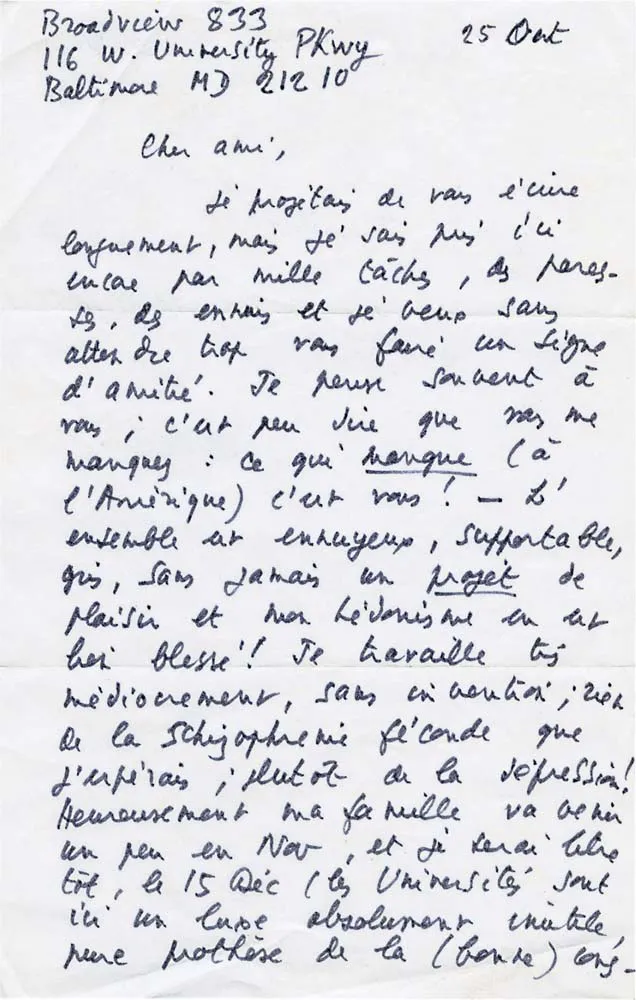 Broadview 833
116 W. University PKwy
Baltimore MD 21210
25 Oct
Cher ami,
Je projetais de vous écrire
longuement, mais je suis pris ici
encore par mille tâches, des pares-
ses, des ennuis et je veux sans
attendre trop vous faire un signe
d'amitié. Je pense souvent à
vous ; c'est peu dire que vous me
manquez : ce qui manque (à
l'Amérique) c'est vous ! — L'
ensemble est ennuyeux, supportable,
gris, sans jamais un projet de
plaisir et mon hédonisme en est
bien blessé ! Je travaille très
médiocrement, sans invention ; rien
de la schizophrénie féconde que
j'espérais ; plutôt de la dépression !
Heureusement ma famille va venir
un peu en Nov, et je serai libre
tôt, le 15 Déc (les Universités sont
ici un luxe absolument inutile
pure prothèse de la (bonne) cons-